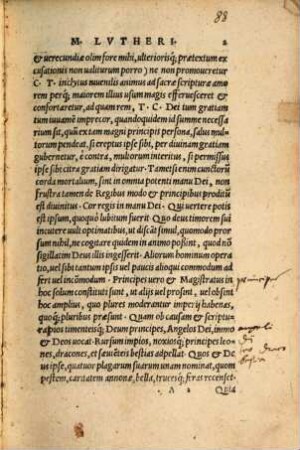 88
M. LVTHERI. 2
& uerecundiæ olim fore mihi, ulteriorisq; prætextum ex
cusationis non ualiturum porro) ne non promoueretur
C. T. inclytus iuuenilis animus ad sacræ scripturæ amo
rem perq; maiorem illius usum magis efferuesceret et
confortaretur, ad quam rem, T. C. Dei tum gratiam
tum iuuamē imprecor, quandoquidem id summe necessa
rium sit, quū ex tam magni principis persona, salus mul
torum pendeat, si ereptus ipse sibi, per diuinam gratiam
gubernetur, ē contra, multorum interitus, si permissus
ipse sibi citra gratiam dirigatur. Tametsi enim cunctorū
corda mortalium, sint in omnia potenti manu Dei, non
frustra tamen de Regibus modo & principibus prodītū
est diuinitus. Cor regis in manu Dei. Qui uertere potis
est ipsum, quoquò lubitum fuerit. Quo deus timorem sui
incutere uult optimatibus, ut discāt simul, quomodo pror
sum nihil, ne cogitare quidem in animo possint, quod nō
sigillatim Deus illis ingesserit. Aliorum hominum opera
tio, uel sibi tantum ipsis uel paucis alioqui commodum ad
fert uel incōmodum. Principes uero & Magistratus in
hoc solum constituti sunt, ut alijs uel prosint, uel obsint
hoc amplius, quo plures moderantur imperij habenæ,
quoq; pluribus præsunt. Quam ob causam & scriptu-
ra pios timentesq; Deum principes, Angelos Dei, immo
& Deos uocat. Rursum impios, noxiosq; principes leo
nes, dracones, et sæuiētes bestias adpellat. Quos & De
us ipse, quatuor plagarum suarum unam nominat, quum
pestem, caritatem annonæ, bella, trucesq; feras recenset.
A 2 Quia
principes
angeli
di